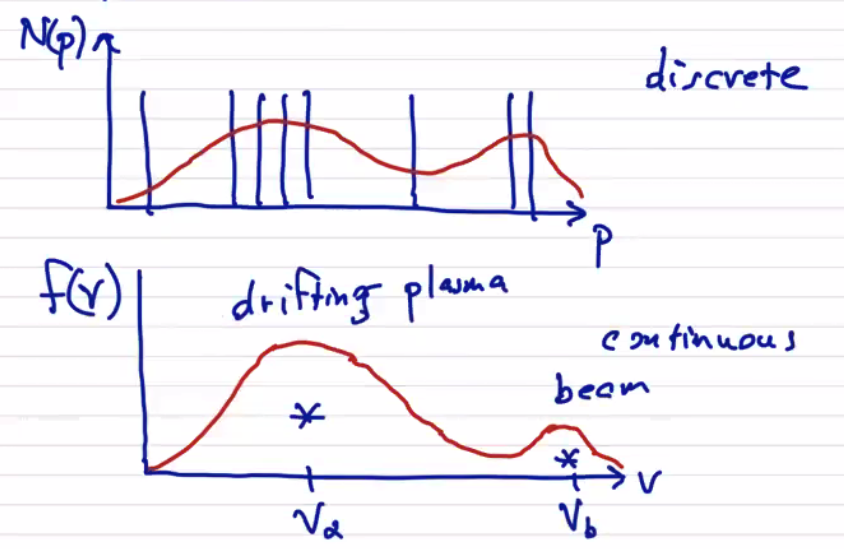 N(p)
discrete
p
f(v)
drifting plasma
continuous
beam
v
Vd
Vb